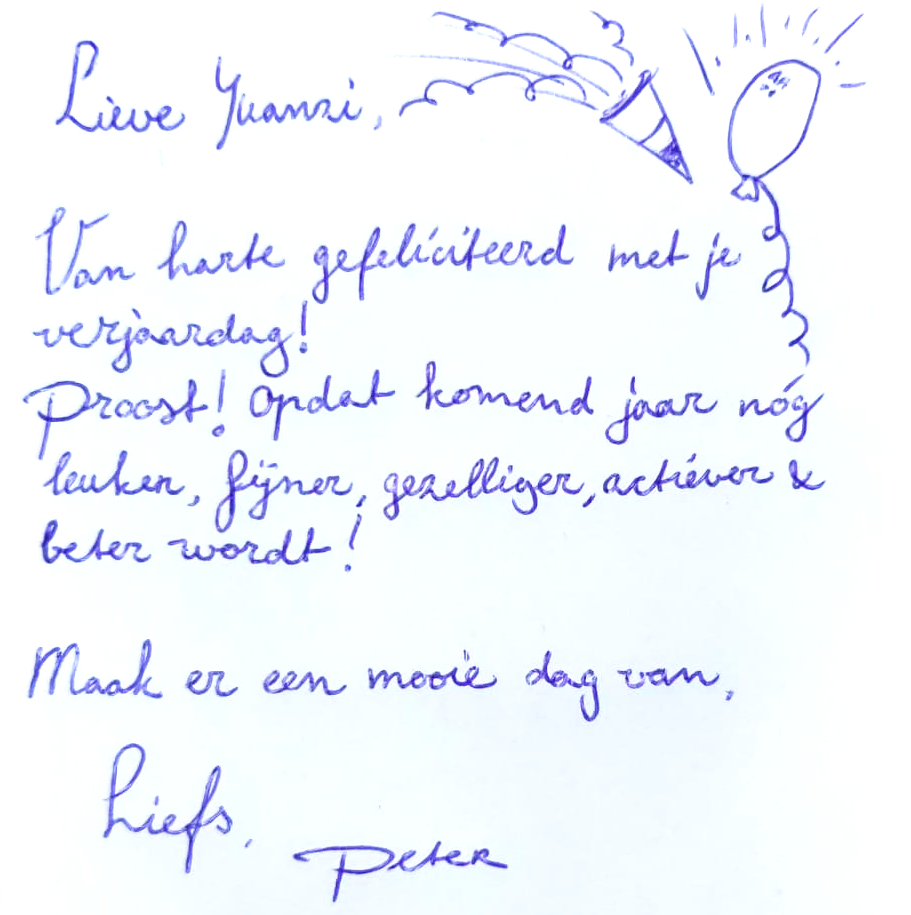 Lieve Yuanzi,
Van harte gefeliciteerd met je
verjaardag!
Proost! Opdat komend jaar nóg
leuker, fijner, gezelliger, actiever &
beter wordt!
Maak er een mooie dag van,
Liefs,
Peter